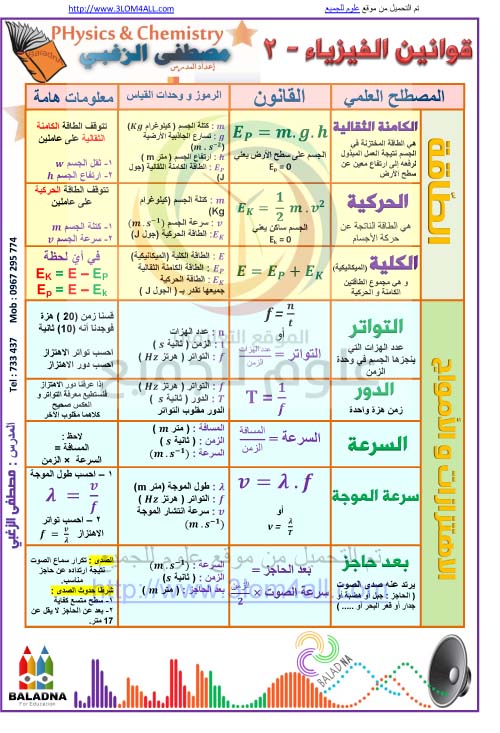 http://www.3LOM4ALL.com
تم التحميل من موقع علوم للجميع
PHysics & Chemistry
مصطفى الزغبي
إعداد المدرس
قوانين الفيزياء - ٢
المصطلح العلمي
القانون
الرموز و وحدات القياس
معلومات هامة
الطاقة
الكامنة الثقالية
هي الطاقة المختزنة في
الجسم نتيجة العمل المبذول
لرفعه إلى ارتفاع معين عن
سطح الأرض
E_P = m.g.h
الجسم على سطح الأرض يعني
E_P = 0
m : كتلة الجسم ( كيلوغرام Kg)
g : تسارع الجاذبية الأرضية
(m.s⁻²)
h : ارتفاع الجسم ( متر m )
E_P : الطاقة الكامنة الثقالية (جول
J)
تتوقف الطاقة الكامنة
الثقالية على عاملين
١- ثقل الجسم w
٢- ارتفاع الجسم h
الحركية
هي الطاقة الناتجة عن
حركة الأجسام
E_K = 1/2 m.v²
الجسم ساكن يعني
E_k = 0
m : كتلة الجسم (كيلوغرام
Kg)
v : سرعة الجسم (m.s⁻¹)
E_K : الطاقة الحركية (جول J)
تتوقف الطاقة الحركية
على عاملين
١- كتلة الجسم m
٢- سرعة الجسم v
الكلية (الميكانيكية)
و هي مجموع الطاقتين
الكامنة و الحركية
E = E_P + E_K
E : الطاقة الكلية (الميكانيكية)
E_P : الطاقة الكامنة الثقالية
E_K : الطاقة الحركية
جميعها تقدر بـ ( الجول J )
في أيّ لحظة
E_K = E – E_P
E_p = E – E_k
الاهتزازات و الأمواج
التواتر
عدد الهزات التي
ينجزها الجسم في وحدة
الزمن
f = n/t
أو
التواتر = عدد الهزات / الزمن
n : عدد الهزات
t : الزمن ( ثانية s )
f : التواتر ( هرتز Hz )
قسنا زمن ( 20 ) هزة
فوجدنا أنه (10) ثانية
احسب تواتر الاهتزاز
احسب دور الاهتزاز
الدور
زمن هزة واحدة
T = 1/f
f : التواتر ( هرتز Hz )
T : الدور ( ثانية s )
الدور مقلوب التواتر
إذا عرفنا دور الاهتزاز
فنستطيع معرفة التواتر و
العكس صحيح
كلاهما مقلوب الآخر
السرعة
السرعة = المسافة / الزمن
المسافة : ( متر m )
الزمن : ( ثانية s )
السرعة : (m.s⁻¹)
لاحظ :
المسافة =
السرعة × الزمن
سرعة الموجة
v = λ.f
أو
v = λ/T
λ : طول الموجة (متر m)
f : التواتر ( هرتز Hz )
v : سرعة انتشار الموجة
(m.s⁻¹)
١ – احسب طول الموجة
λ = v/f
٢ – احسب تواتر
الاهتزاز f = v/λ
بعد حاجز
يرتد عنه صدى الصوت
( الحاجز : جبل أو هضبة أو
جدار أو قعر البحر أو ..... )
بعد الحاجز =
سرعة الصوت × الزمن/2
السرعة : (m.s⁻¹)
الزمن : ( ثانية s)
بعد الحاجز : ( متر m )
الصدى : تكرار سماع الصوت
نتيجة ارتداده عن حاجز
مناسب.
شرطا حدوث الصدى :
١- سطح متسع كفاية
٢- بعد عن الحاجز لا يقل عن
17 متر.
المدرس : مصطفى الزغبي
Tel : 733 437
Mob : 0967 295 774
الموقع التربوي
علوم للجميع
تم التحميل من موقع علوم للجميع
http://www.3lom4all.com
BALADNA
For Education
BALADNA